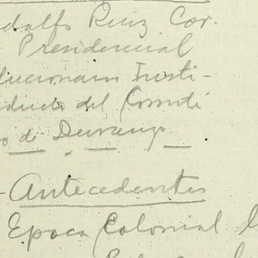 dolfo Ruiz Cor-
Presidencial
lucionario Insti-
ducto del Comité
o de Durango
- Antecedentes
Epoca Colonial l